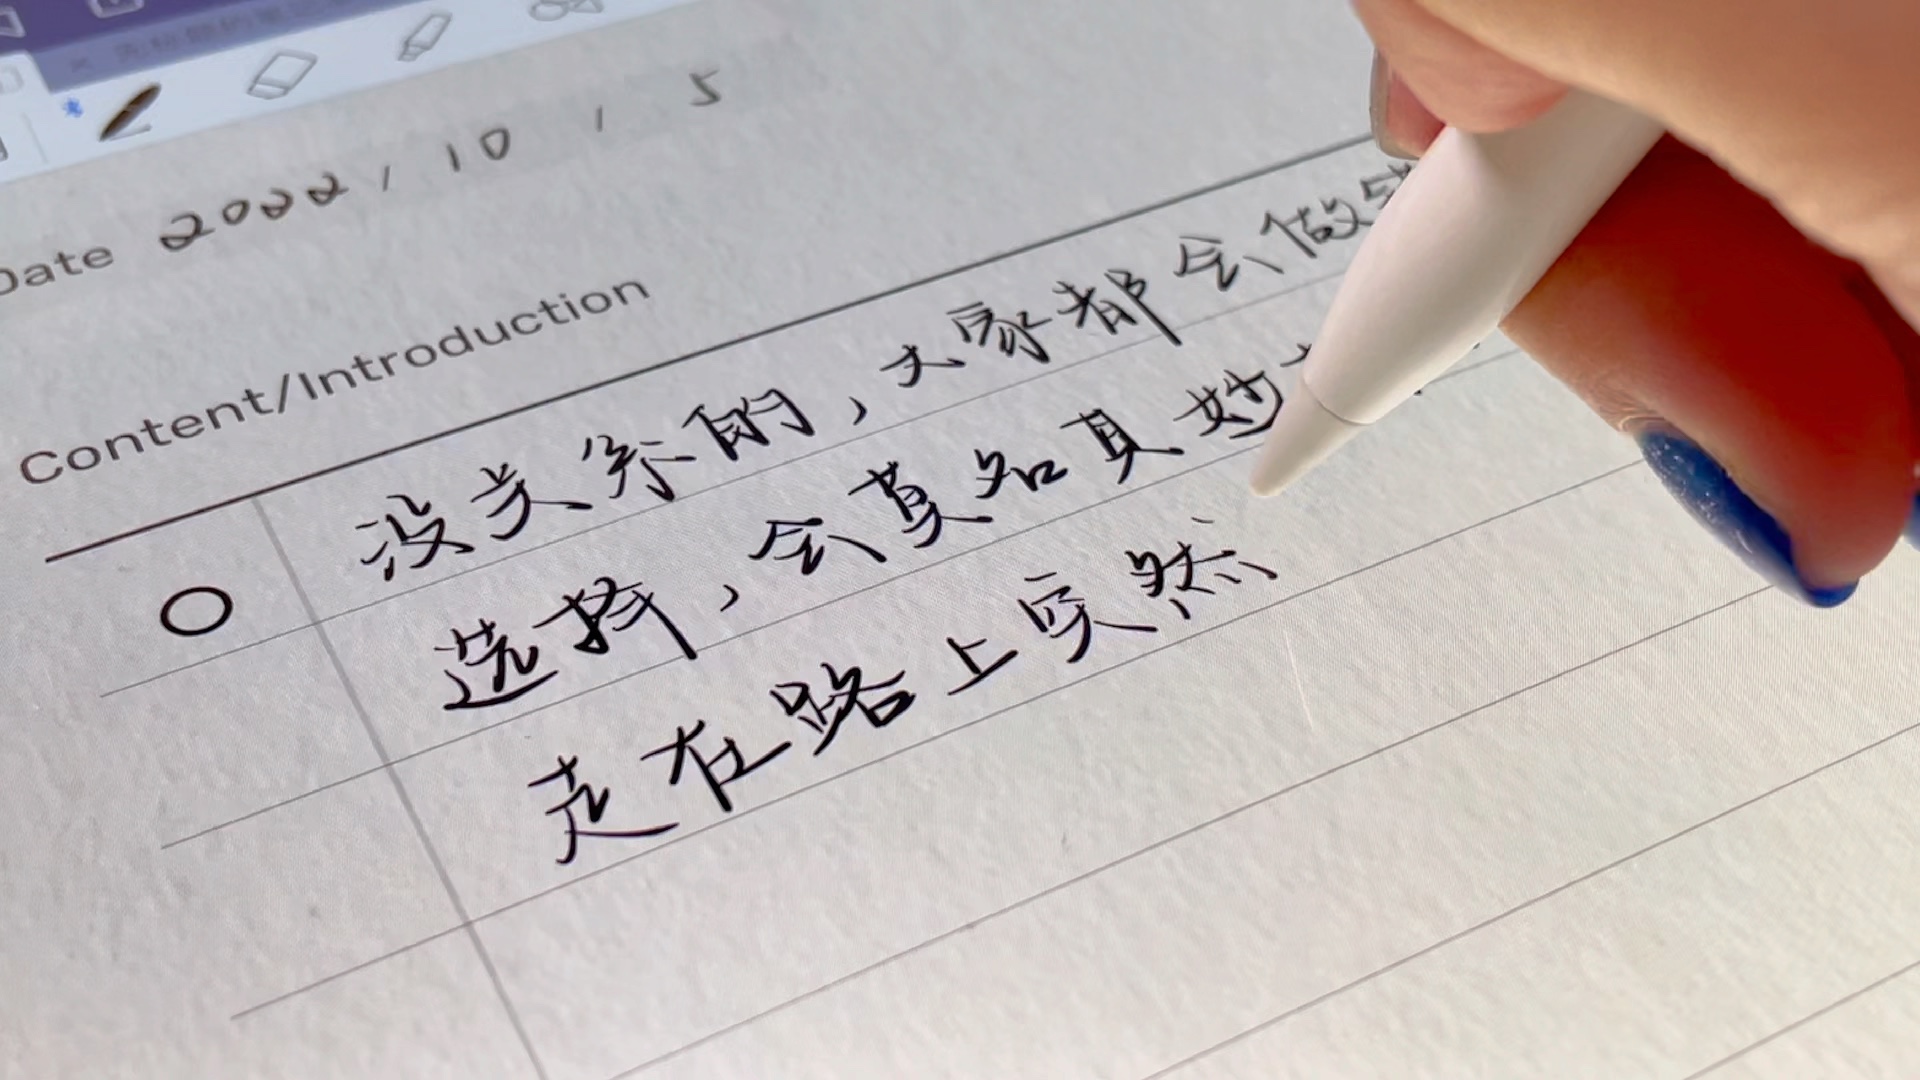 Date 2022 / 10 / 5
Content/Introduction
没关系的，大家都会做
选择，会莫名其妙
走在路上突然